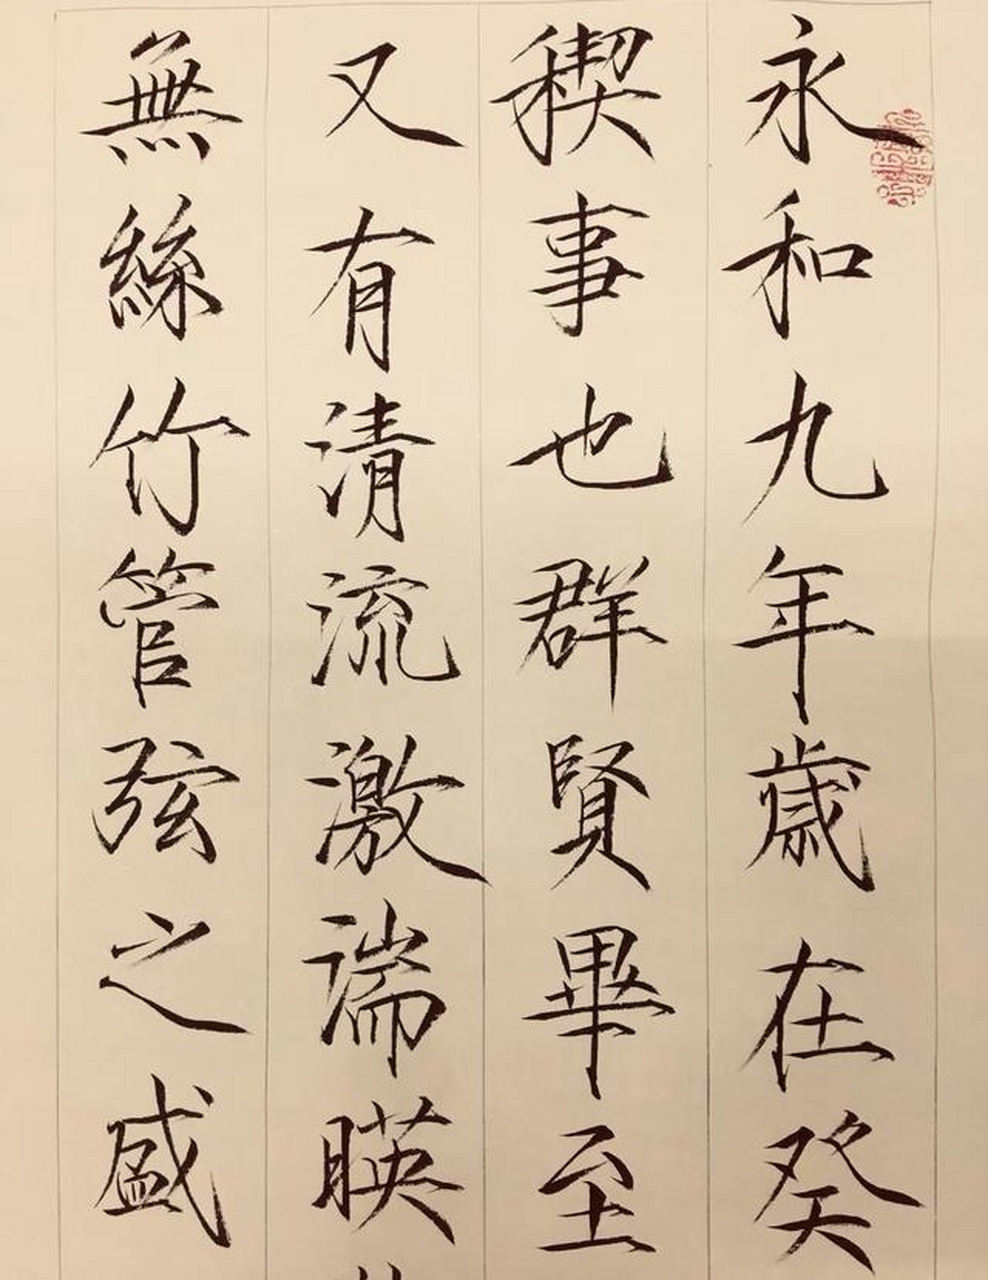 永和九年歲在癸
稧事也群賢畢至
又有清流激湍暎
無絲竹管弦之盛